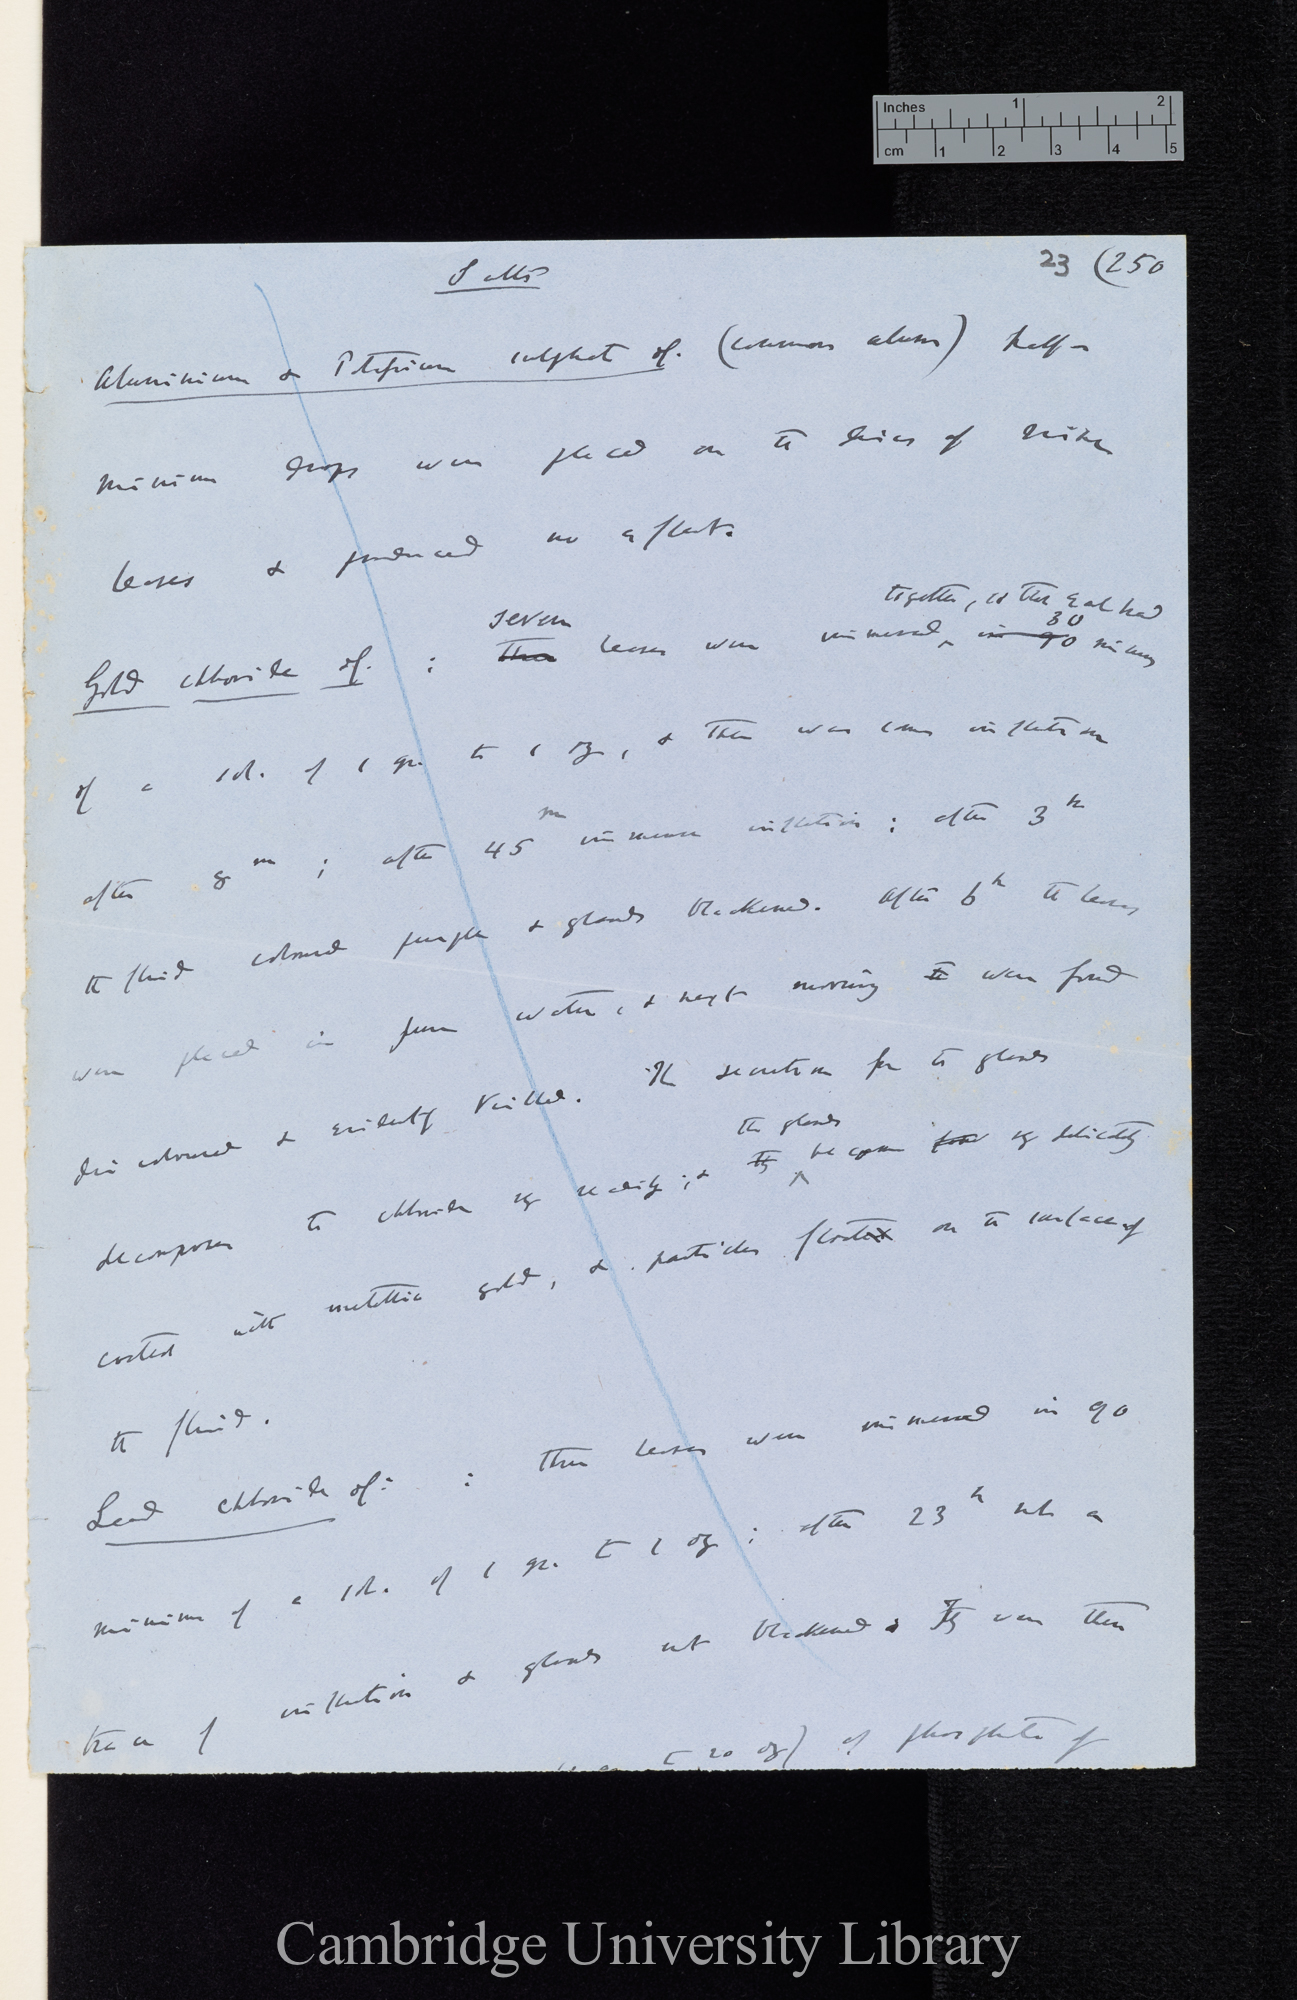 Inches 1 2
cm 1 2 3 4 5
Salts
23 (250
Aluminium & Potassium sulphat of. (common alum) half-
minim drops were placed on the discs of nine
leaves & produced no effect.
together, so that each had
seven 30
Gold chloride of. : three leaves were immersed, in 90 minims
of a sol. of 1 gr. to 1 oz, & there was some inflection
after 8 m ; after 45 m immense inflection ; after 3 h
the fluid coloured purple & glands blackened. After 6 h the leaves
were placed in pure water, & next morning were found
discoloured & evidently killed. The secretion from the glands
the glands
decomposes the chloride very readily ; & they become very delicately
coated with metallic gold, & particles floated on the surface of
the fluid.
Lead chloride of : three leaves were immersed in 90
minims of a sol. of 1 gr. to 1 oz ; after 23 h not a
trace of inflection & glands not blackened. They were then
to 20 oz) of phosphate of
Cambridge University Library